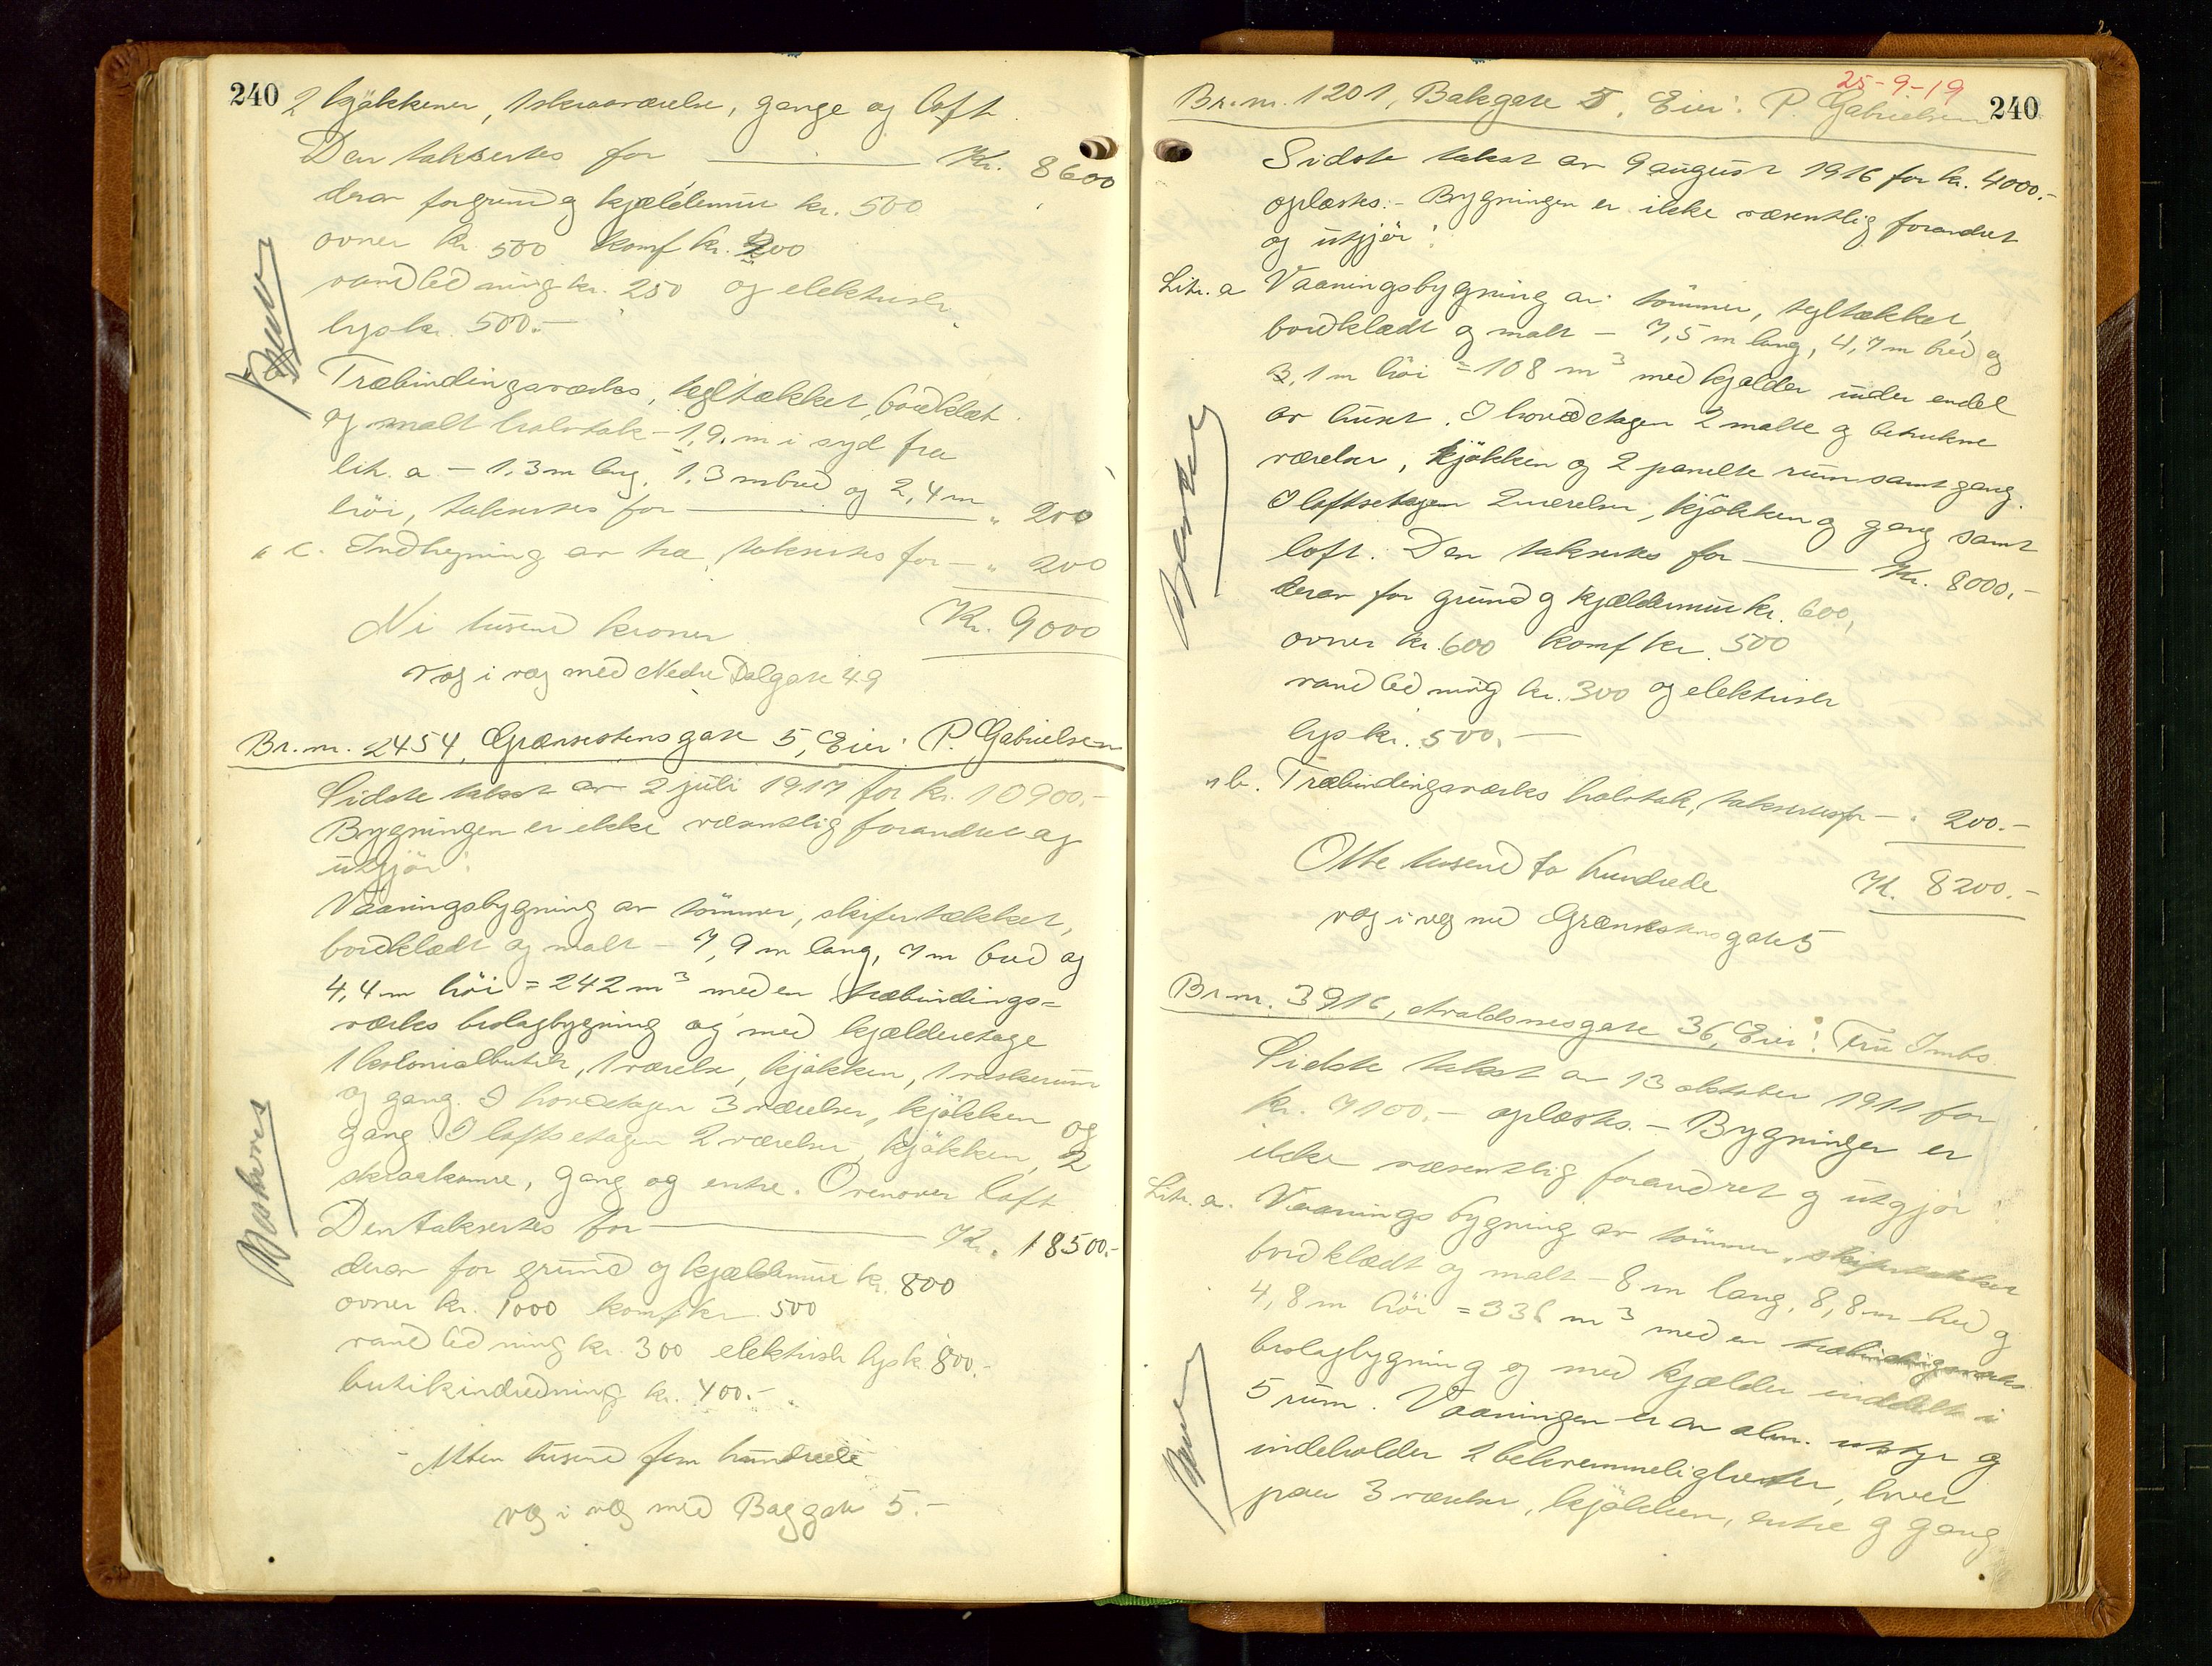 240
2 kjøkkener, 1 skraaværelse, gange og loft.
Den takseres for — Kr. 8600
derav for grund og kjældermur kr. 500
ovner kr. 500 komf kr. 200
vandledning kr. 250 og elektrisk
lys kr. 500.-
Træbindingsværks, tegltækket, bordklæt
og malt halvtak - 1,9 m i syd fra
lit. a. - 1,3 m lang, 1,3 m bred og 2,4 m
høi, takseres for — " 200
" c. Indhegning av træ, takseres for — " 200
Kr. 9000
Ni tusend kroner
væg i væg med Nedre Dalgate 49
Br. nr. 2454, Grænsestensgate 5, Eier: P. Gabrielsen
Sidste takst av 2 juli 1917 for kr. 10900.-
Bygningen er ikke væsentlig forandret og
utgjør:
Vaaningsbygning av tømmer, skifertækket,
bordklædt og malt - 7,9 m lang, 7 m bred og
4,4 m høi = 242 m³ med en træbindings=
værks bislagbygning og med kjælderetage
1 kolonialbutik, 1 værelse, kjøkken, 1 vaskerum
og gang. I hovedetagen 3 værelser, kjøkken og
gang. I loftsetagen 2 værelser, kjøkken, 2
skraakamre, gang og entre. Ovenover loft
Den takseres for — Kr. 18500.-
derav for grund og kjældermur kr. 800
ovner kr. 1000 komf kr. 500
vandledning kr. 300 elektrisk lys kr. 800.-
butikindredning kr. 400.-
- Atten tusend fem hundrede
væg i væg med Baggate 5.-
25-9-19
240
Br. nr. 1201, Bakgate 5, Eier: P. Gabrielsen
Sidste takst av 9 august 1916 for kr. 4000.-
oplæstes.- Bygningen er ikke væsentlig forandret
og utgjør:
Litr. a Vaaningsbygning av tømmer, tegltækket,
bordklædt og malt - 7,5 m lang, 4,7 m bred og
3,1 m høi = 108 m³ med kjælder under endel
av huset. I hovedetagen 2 malte og betrukne
værelser, kjøkken og 2 panelte rum samt gang.
I loftsetagen 2 værelser, kjøkken og gang samt
loft. Den takseres for — Kr. 8000.-
derav for grund og kjældermur kr. 600,
ovner kr. 600 komf kr. 500
vandledning kr. 300 og elektrisk
lys kr. 500.-
" b. Træbindingsværks halvtak, takseres for - " 200.-
Otte tusend to hundrede Kr. 8200.-
væg i væg med Grænsestensgate 5
Br. nr. 3916, Avaldsnesgate 36, Eier: Fru Imbs.
Sidste takst av 13 oktober 1911 for
kr. 7100.- oplæstes. - Bygningen er
ikke væsentlig forandret og utgjør
Litr. a. Vaaningsbygning av tømmer, skifertækket
bordklædt og malt - 8 m lang, 8,8 m bred og
4,8 m høi = 338 m³ med en træbindingsværks
bislagbygning og med kjælder inddelt i
5 rum. Vaaningen er av alm. utstyr og
indeholder 2 bekvemmeligheter, hver
paa 3 værelser, kjøkken, entre og gang